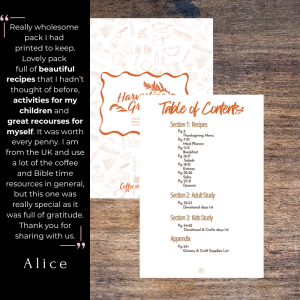 Really wholesome
pack I had
printed to keep.
Lovely pack
full of beautiful
recipes that I hadn't
thought of before,
activities for my
children and
great recourses for
myself. It was worth
every penny. I am
from the UK and use
a lot of the coffee
and Bible time
resources in general,
but this one was
really special as it
was full of gratitude.
Thank you for
sharing with us.
Alice
Harv
G
Coffee
Table of Contents
Section 1: Recipes
Pg. 6
Thanksgiving Menu
Pg. 7-10
Meal Planner
Pg. 11-15
Breakfast
Pg. 16-19
Salads
Pg. 20-21
Entrees
Pg. 22-26
Sides
Pg. 27-31
Desserts
Section 2: Adult Study
Pg. 32-53
Devotional days 1-6
Section 3: Kids Study
Pg. 54-65
Devotional & Crafts days 1-6
Appendix
Pg. 66+
Grocery & Craft Supplies List